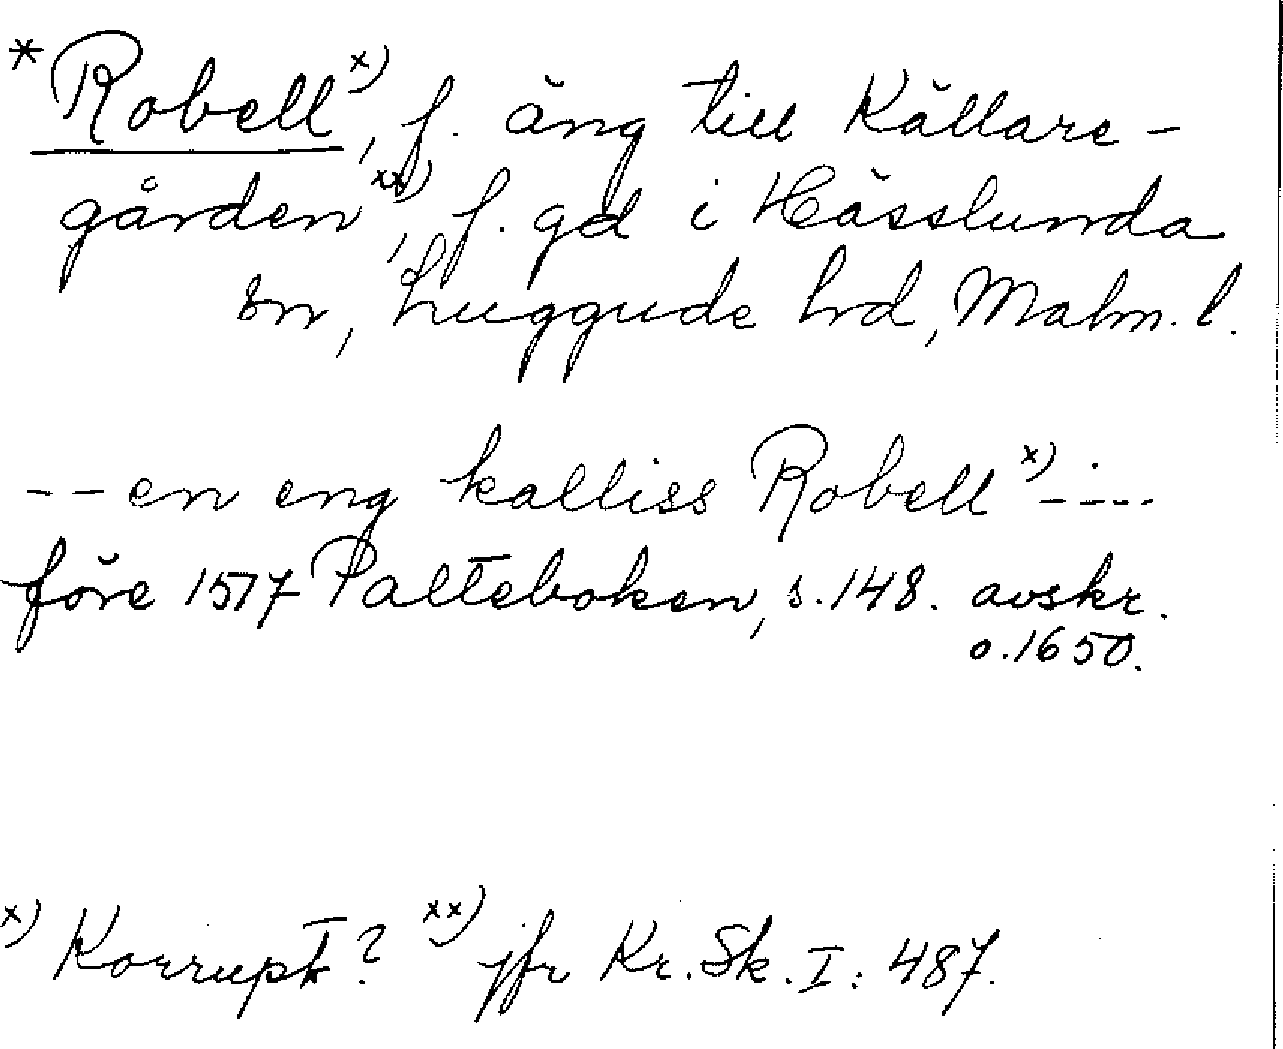 *Robell x), f. äng till Källare-
gården xx), f. gd i Hässlunda
sn, Luggude hd, Malm. l.
-- en eng kalliss Robell x) ----
före 1517 Palteboken, s. 148. avskr.
o. 1650.
x) Korrupt? xx) jfr Kr. Sk. I: 487.